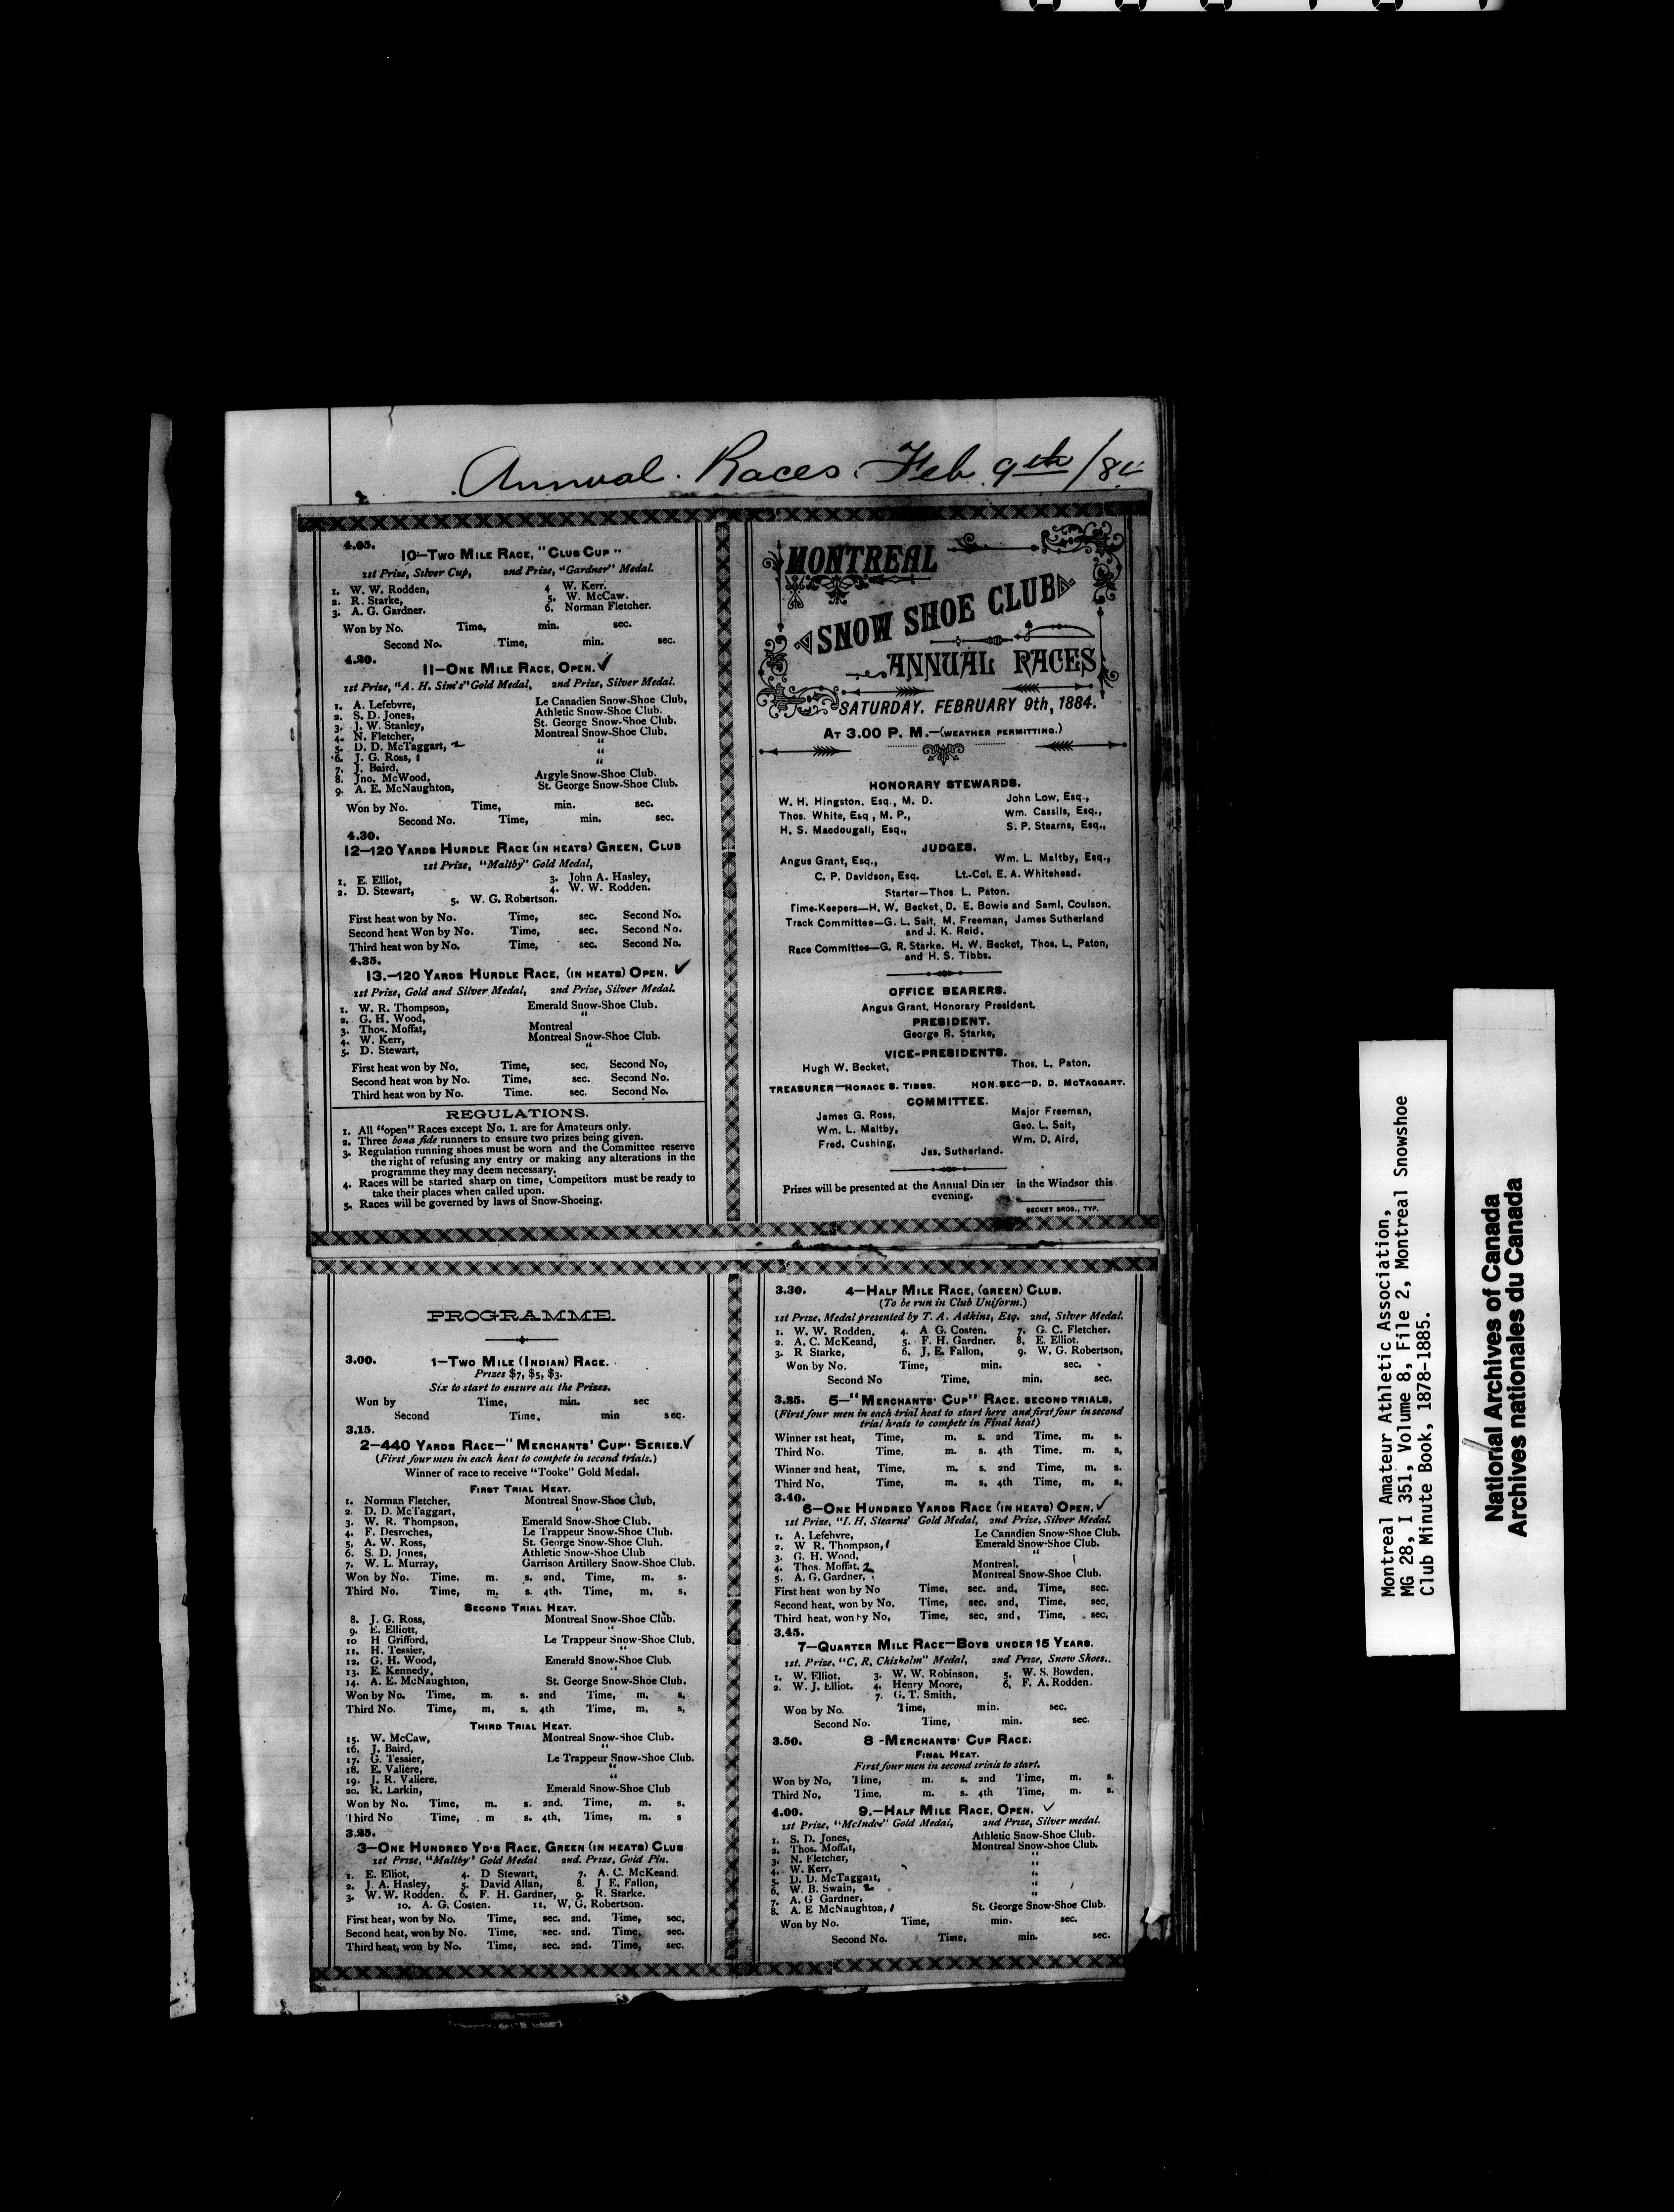 Annual Races Feb 9th /84
4.05.
10—Two Mile Race, "Club Cup"
1st Prize, Silver Cup, 2nd Prize, "Gardner" Medal.
1. W. W. Rodden, 4 W. Kerr.
2. R. Starke, 5. W. McCaw.
3. A. G. Gardner. 6. Norman Fletcher.
Won by No. Time, min. sec.
Second No. Time, min. sec.
4.20.
11—One Mile Race, Open. ✓
1st Prize, "A. H. Sim's" Gold Medal, 2nd Prize, Silver Medal.
1. A. Lefebvre, Le Canadien Snow-Shoe Club,
2. S. D. Jones, Athletic Snow-Shoe Club.
3. J. W. Stanley, St. George Snow-Shoe Club.
4. N. Fletcher, Montreal Snow-Shoe Club.
5. D. D. McTaggart, 2 "
6. J. G. Ross, 1 "
7. J. Baird, "
8. Jno. McWood, Argyle Snow-Shoe Club.
9. A. E. McNaughton, St. George Snow-Shoe Club.
Won by No. Time, min. sec.
Second No. Time, min. sec.
4.30.
12—120 Yards Hurdle Race (in heats) Green, Club
1st Prize, "Maltby" Gold Medal,
1. E. Elliot, 3. John A. Hasley,
2. D. Stewart, 4. W. W. Rodden.
5. W. G. Robertson.
First heat won by No. Time, sec. Second No.
Second heat Won by No. Time, sec. Second No.
Third heat won by No. Time, sec. Second No.
4.35.
13.—120 Yards Hurdle Race, (in heats) Open. ✓
1st Prize, Gold and Silver Medal, 2nd Prize, Silver Medal.
1. W. R. Thompson, Emerald Snow-Shoe Club.
2. G. H. Wood, "
3. Thos. Moffat, Montreal
4. W. Kerr, Montreal Snow-Shoe Club.
5. D. Stewart, "
First heat won by No. Time, sec. Second No,
Second heat won by No. Time, sec. Second No.
Third heat won by No. Time. sec. Second No.
REGULATIONS.
1. All "open" Races except No. 1. are for Amateurs only.
2. Three bona fide runners to ensure two prizes being given.
3. Regulation running shoes must be worn and the Committee reserve
the right of refusing any entry or making any alterations in the
programme they may deem necessary.
4. Races will be started sharp on time, Competitors must be ready to
take their places when called upon.
5. Races will be governed by laws of Snow-Shoeing.
MONTREAL
SNOW SHOE CLUB
ANNUAL RACES
SATURDAY. FEBRUARY 9th, 1884.
At 3.00 P. M.—(weather permitting.)
HONORARY STEWARDS.
W. H. Hingston. Esq., M. D. John Low, Esq.,
Thos. White, Esq, M. P., Wm. Cassils, Esq.,
H. S. Macdougall, Esq., S. P. Stearns, Esq.,
JUDGES.
Angus Grant, Esq., Wm. L. Maltby, Esq.,
C. P. Davidson, Esq. Lt.-Col. E. A. Whitehead.
Starter—Thos L. Paton.
Time-Keepers—H. W. Becket, D. E. Bowie and Saml. Coulson.
Track Committee—G. L. Sait, M. Freeman, James Sutherland
and J. K. Reid.
Race Committee—G. R. Starke. H. W. Becket, Thos. L. Paton,
and H. S. Tibbs.
OFFICE BEARERS.
Angus Grant, Honorary President.
PRESIDENT.
George R. Starke,
VICE-PRESIDENTS.
Hugh W. Becket, Thos. L. Paton,
Treasurer—Horace S. Tibbs. Hon. Sec—D. D. McTaggart.
COMMITTEE.
James G. Ross, Major Freeman,
Wm. L. Maltby, Geo. L. Sait,
Fred. Cushing, Wm. D. Aird,
Jas. Sutherland.
Prizes will be presented at the Annual Dinner in the Windsor this
evening.
BECKET BROS., TYP.
PROGRAMME.
3.00. 1—Two Mile (Indian) Race.
Prizes $7, $5, $3.
Six to start to ensure all the Prizes.
Won by Time, min. sec
Second Time, min sec.
3.15.
2—440 Yards Race—"Merchants' Cup" Series. ✓
(First four men in each heat to compete in second trials.)
Winner of race to receive "Tooke" Gold Medal.
First Trial Heat.
1. Norman Fletcher, Montreal Snow-Shoe Club,
2. D. D. McTaggart, "
3. W. R. Thompson, Emerald Snow-Shoe Club.
4. F. Desroches, Le Trappeur Snow-Shoe Club.
5. A. W. Ross, St. George Snow-Shoe Club.
6. S. D. Jones, Athletic Snow-Shoe Club
7. W. L. Murray, Garrison Artillery Snow-Shoe Club.
Won by No. Time. m. s. 2nd, Time, m. s.
Third No. Time, m. s. 4th. Time, m, s.
Second Trial Heat.
8. J. G. Ross, Montreal Snow-Shoe Club.
9. E. Elliott, "
10 H Grifford, Le Trappeur Snow-Shoe Club.
11. H. Tessier, "
12. G. H. Wood, Emerald Snow-Shoe Club.
13. E. Kennedy, "
14. A. E. McNaughton, St. George Snow-Shoe Club.
Won by No. Time, m. s. 2nd Time, m, s,
Third No. Time, m, s. 4th Time, m, s,
Third Trial Heat.
15. W. McCaw, Montreal Snow-Shoe Club.
16. J. Baird, "
17. G. Tessier, Le Trappeur Snow-Shoe Club.
18. E. Valiere, "
19. J. R. Valiere, "
20. R. Larkin, Emerald Snow-Shoe Club
Won by No. Time, m. s. 2nd. Time, m. s.
Third No Time, m s. 4th, Time, m. s
3.25.
3—One Hundred Yd's Race, Green (in heats) Club
1st Prize, "Maltby" Gold Medal 2nd. Prize, Gold Pin.
1. E. Elliot, 4. D Stewart, 7. A. C. McKeand.
2. J. A. Hasley, 5. David Allan, 8. J E. Fallon,
3. W. W. Rodden. 6. F. H. Gardner, 9. R. Starke.
10. A. G. Costen. 11, W, G, Robertson.
First heat, won by No. Time, sec. 2nd. Time, sec,
Second heat, won by No. Time, sec. 2nd. Time, sec.
Third heat, won by No. Time, sec. 2nd. Time, sec.
3.30. 4—Half Mile Race, (green) Club.
(To be run in Club Uniform.)
1st Prize, Medal presented by T. A. Adkins, Esq. 2nd, Silver Medal.
1. W. W. Rodden, 4. A G. Costen. 7. G. C. Fletcher.
2. A. C. McKeand, 5. F. H. Gardner. 8, E. Elliot.
3. R Starke, 6. J, E. Fallon, 9. W. G. Robertson,
Won by No. Time, min. sec.
Second No Time, min. sec.
3.35. 5—"Merchants' Cup" Race. second trials,
(First four men in each trial heat to start here and first four in second
trial heats to compete in Final heat)
Winner 1st heat, Time, m. s. 2nd Time. m. s.
Third No. Time, m. s. 4th Time. m. s,
Winner 2nd heat, Time, m. s. 2nd Time, m. s.
Third No, Time, m. s, 4th Time, m, s,
3.40.
6—One Hundred Yards Race (in heats) Open. ✓
1st Prize, "I. H. Stearns' Gold Medal, 2nd Prize, Silver Medal.
1. A. Lefebvre, Le Canadien Snow-Shoe Club.
2. W R. Thompson, 1 Emerald Snow-Shoe Club.
3. G. H. Wood, "
4. Thos. Moffat, 2 Montreal.
5. A. G. Gardner, Montreal Snow-Shoe Club.
First heat won by No Time, sec. 2nd, Time, sec.
Second heat, won by No. Time, sec. 2nd, Time, sec,
Third heat, won by No, Time, sec, 2nd, Time, sec.
3.45.
7—Quarter Mile Race—Boys under 15 Years.
1st. Prize, "C. R. Chisholm" Medal, 2nd Prize, Snow Shoes..
1. W. Elliot, 3. W. W. Robinson, 5. W. S. Bowden,
2. W. J. Elliot. 4. Henry Moore, 6. F. A. Rodden.
7. G. T. Smith,
Won by No. Time, min. sec.
Second No. Time, min. sec.
3.50. 8 -Merchants' Cup Race.
Final Heat.
First four men in second trials to start.
Won by No, Time, m. s. 2nd Time, m. s.
Third No, Time, m. s. 4th Time, m. s.
4.00 9.—Half Mile Race, Open. ✓
1st Prize, "McIndoe" Gold Medal, 2nd Prize, Silver medal.
1. S. D. Jones, Athletic Snow-Shoe Club.
2. Thos. Moffat, Montreal Snow-Shoe Club.
3. N. Fletcher, "
4. W. Kerr, "
5. D. D. McTaggart, "
6. W. B. Swain, 2 "
7. A. G Gardner, "
8. A. E McNaughton, 1 St. George Snow-Shoe Club.
Won by No. Time, min. sec.
Second No. Time, min. sec.
Montreal Amateur Athletic Association,
MG 28, I 351, Volume 8, File 2, Montreal Snowshoe
Club Minute Book, 1878-1885.
National Archives of Canada
Archives nationales du Canada